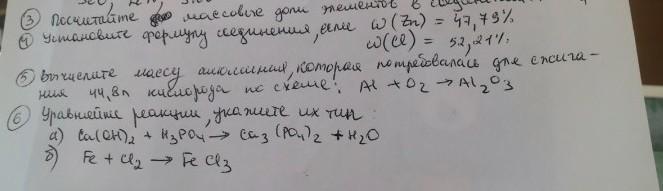 ③ Посчитайте массовые доли элементов в
④ Установите формулу соединения, если ω(Zn) = 47,79%
ω(Cl) = 52,21%
⑤ Вычислите массу алюминия, которая потребовалась для сжига-
ния 44,8л кислорода по схеме: Al + O₂ → Al₂O₃
⑥ Уравняйте реакции, укажите их тип:
а) Ca(OH)₂ + H₃PO₄ → Ca₃(PO₄)₂ + H₂O
б) Fe + Cl₂ → FeCl₃